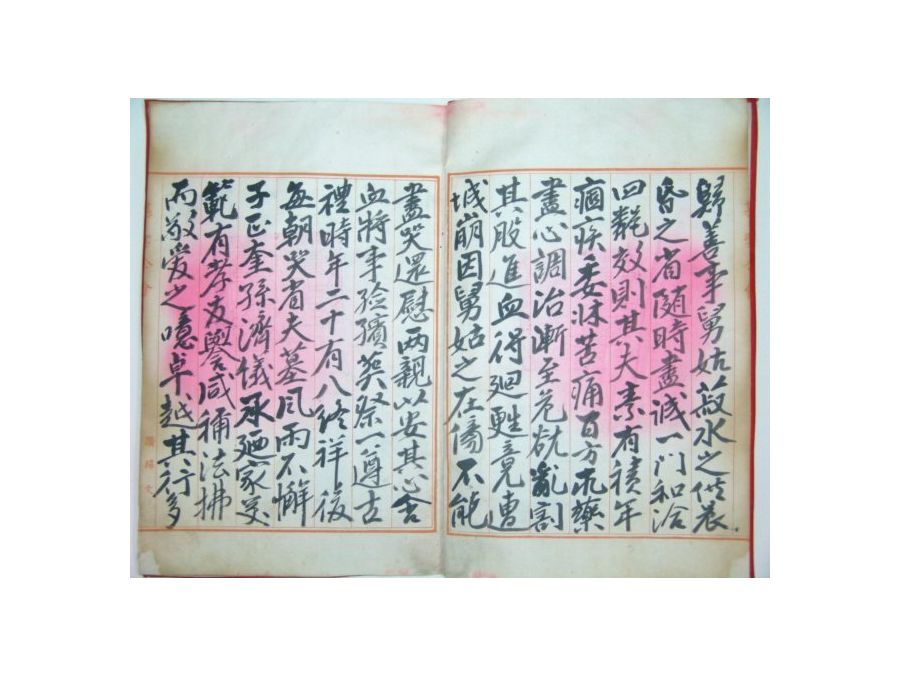 歸善事舅姑菽水之供晨
昏之省隨時盡誠一門和洽
四鄰效則其夫素有積年
痼疾委牀苦痛百方求藥
盡心調治漸至危就亂割
其股進血得廻甦竟遭
城崩因舅姑之在傷不能
盡哭還慰兩親以安其心含
血將事殮殯葬祭一遵古
禮時年二十有八終祥後
每朝哭省夫墓風雨不懈
子正奎孫濟儀承廼家美
範有孝友譽咸稱法拂
而敬愛之噫卓越其行多